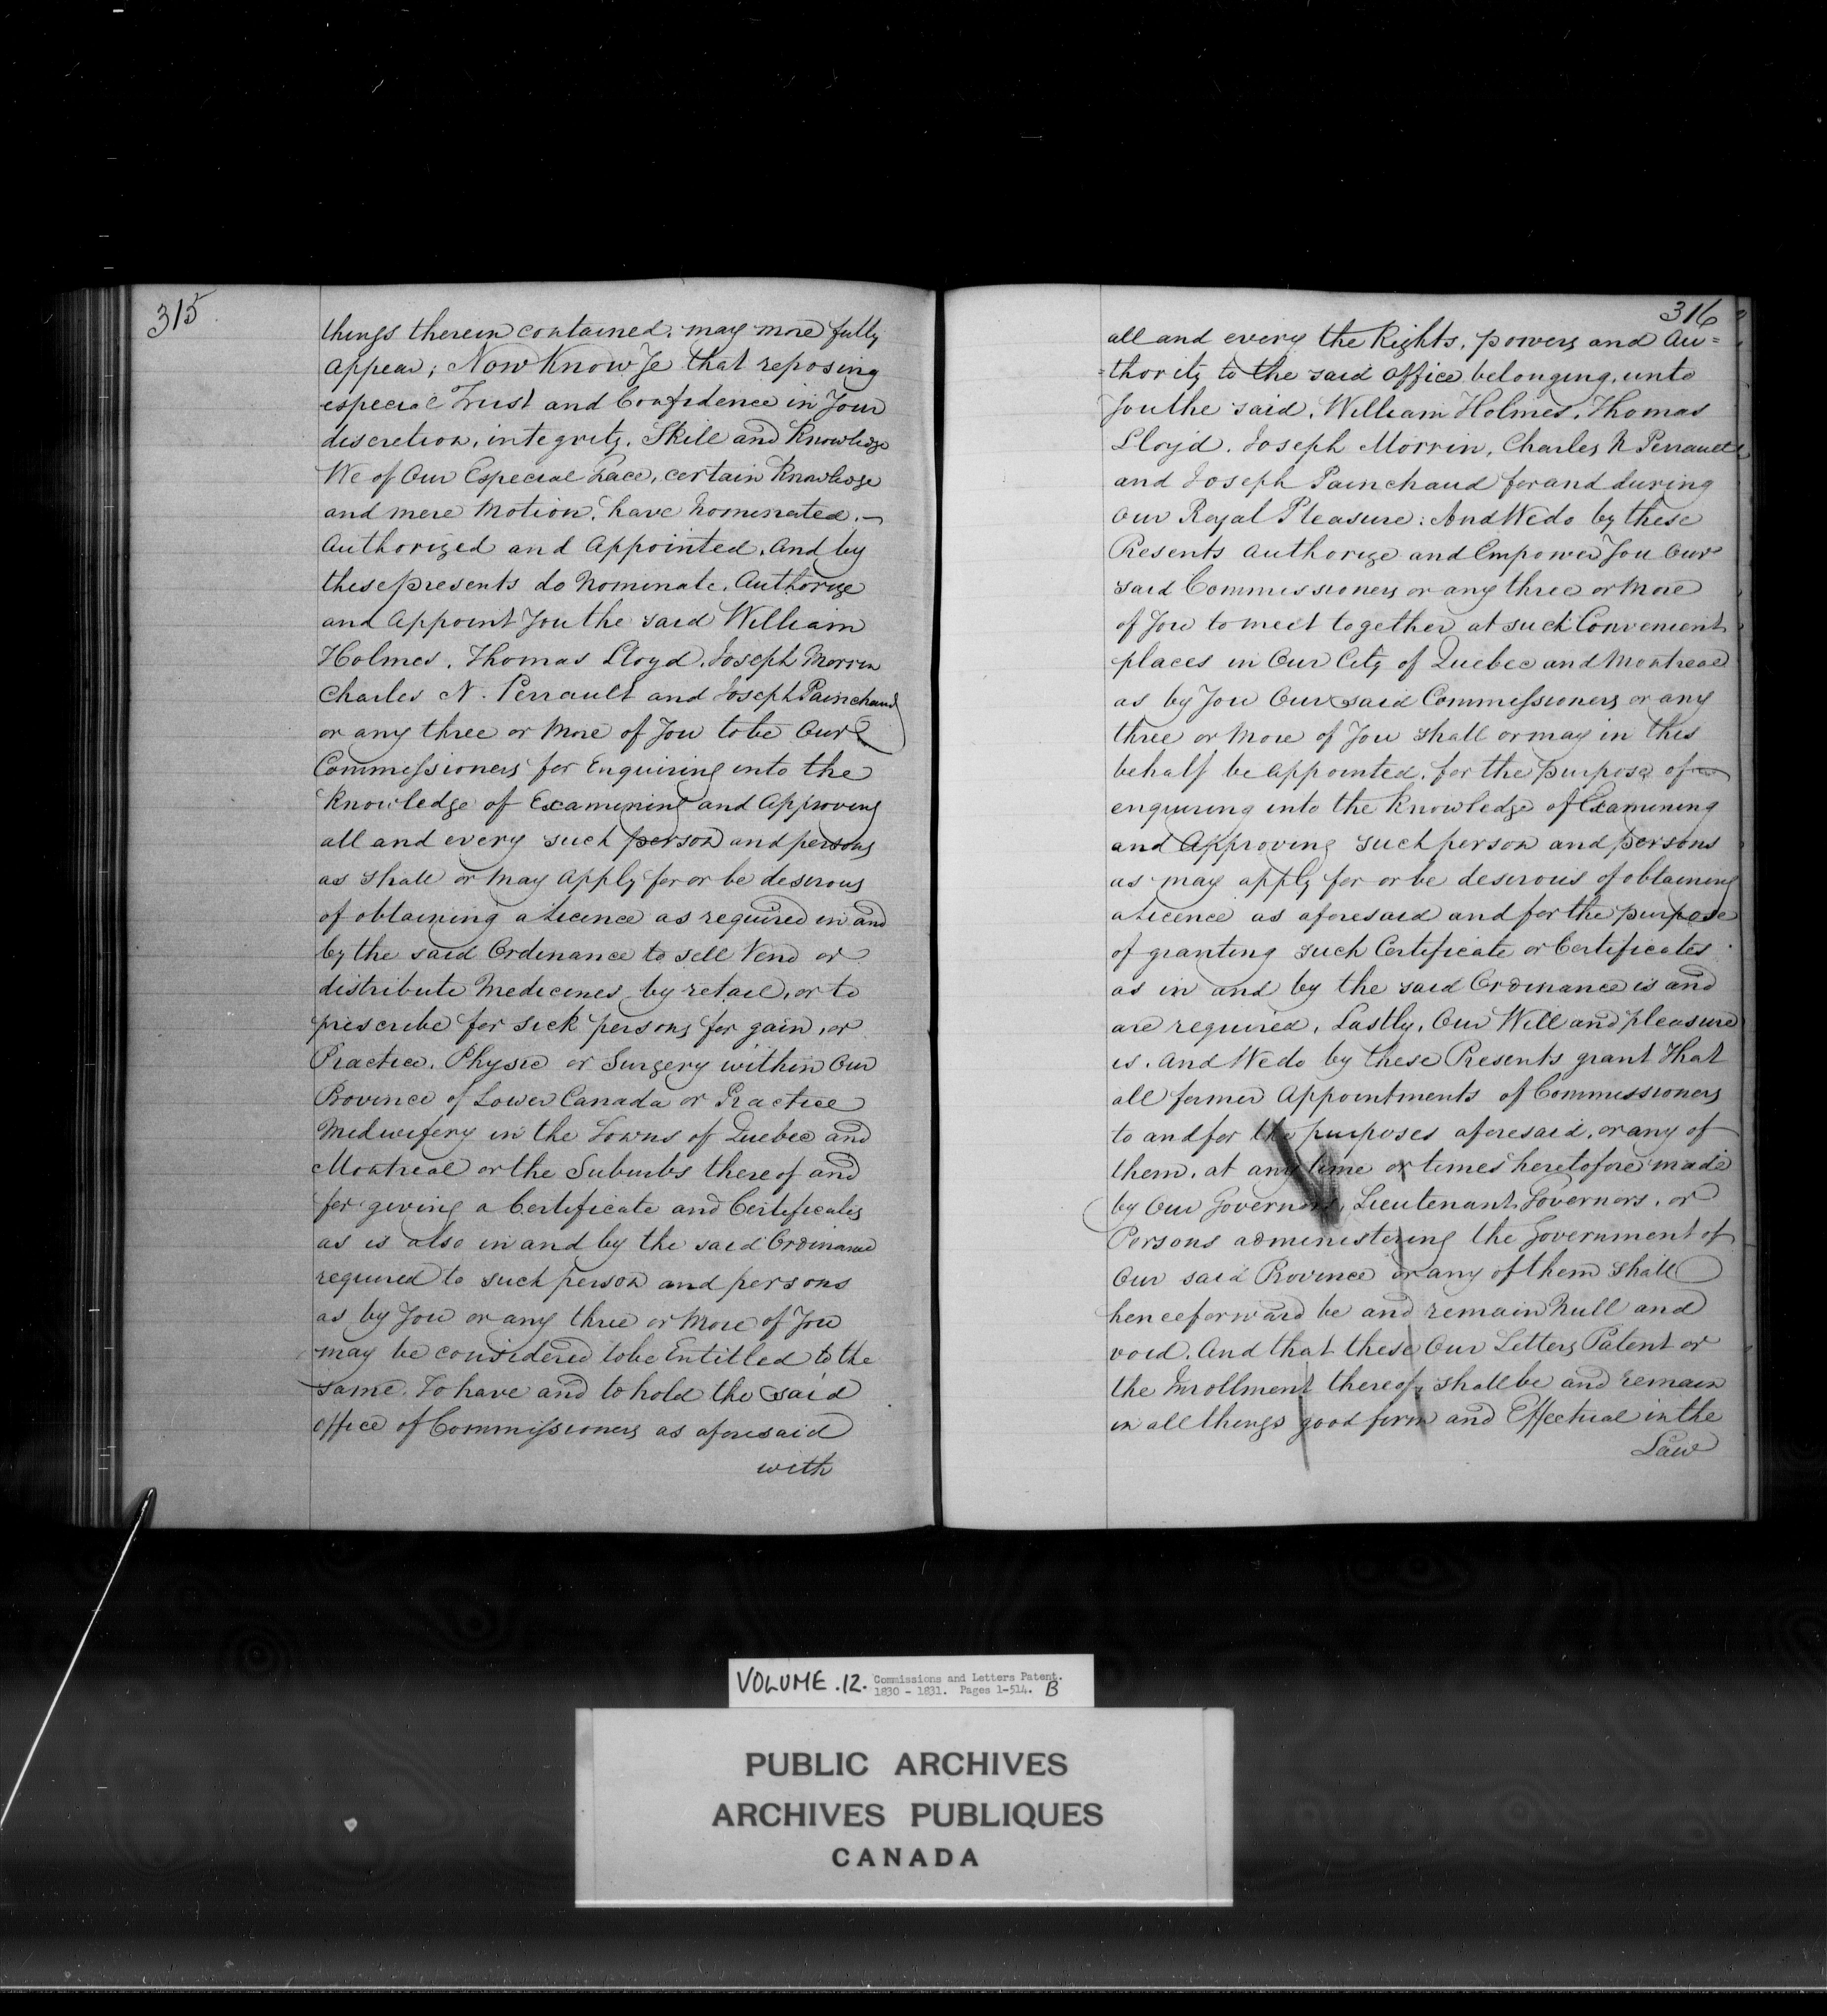 315
things therein contained, may more fully
appear; Now Know Ye that reposing
especial Trust and Confidence in Your
discretion, integrity, Skill and Knowledge
We of Our Especial Grace, certain Knowledge
and mere Motion, have Nominated,
Authorized and Appointed, And by
these presents do Nominate, Authorize
and Appoint You the said William
Holmes, Thomas Lloyd, Joseph Morrin
Charles N. Perrault and Joseph Painchaud
or any three or More of You to be Our
Commissioners for Enquiring into the
Knowledge of Examining and Approving
all and every such person and persons
as shall or May Apply for or be desirous
of obtaining a Licence as required in and
by the said Ordinance to sell Vend or
distribute Medecines by retail, or to
prescribe for sick persons for gain, or
Practice, Physic or Surgery within Our
Province of Lower Canada or Practice
Midwifery in the Towns of Quebec and
Montreal or the Suburbs thereof and
for giving a Certificate and Certificates
as is also in and by the said Ordinance
required to such person and persons
as by You or any three or More of You
may be considered to be Entitled to the
same. To have and to hold the said
Office of Commissioners as aforesaid
with
316
all and every the Rights, powers and Au=
=thority to the said Office belonging, unto
You the said, William Holmes, Thomas
Lloyd, Joseph Morrin, Charles N Perrault
and Joseph Painchaud for and during
Our Royal Pleasure: And We do by these
Presents Authorize and Empower You Our
said Commissioners or any three or More
of You to meet together at such Convenient
places in Our City of Quebec and Montreal
as by You Our said Commissioners or any
three or More of You shall or may in this
behalf be Appointed, for the purpose of
enquiring into the Knowledge of Examining
and Approving such person and persons
as may apply for or be desirous of obtaining
a Licence as aforesaid and for the purpose
of granting such Certificate or Certificates
as in and by the said Ordinance is and
are required, Lastly, Our Will and pleasure
is, And We do by these Presents grant That
all former Appointments of Commissioners
to and for the purposes aforesaid, or any of
them, at any time or times heretofore made
by Our Governors, Lieutenant Governors, or
Persons administering the Government of
Our said Province or any of them shall
henceforward be and remain Null and
void, And that these Our Letters Patent or
the Inrollment thereof, shall be and remain
in all things good firm and Effectual in the
Law
VOLUME .12. Commissions and Letters Patent.
1830 - 1831. Pages 1-514. B
PUBLIC ARCHIVES
ARCHIVES PUBLIQUES
CANADA